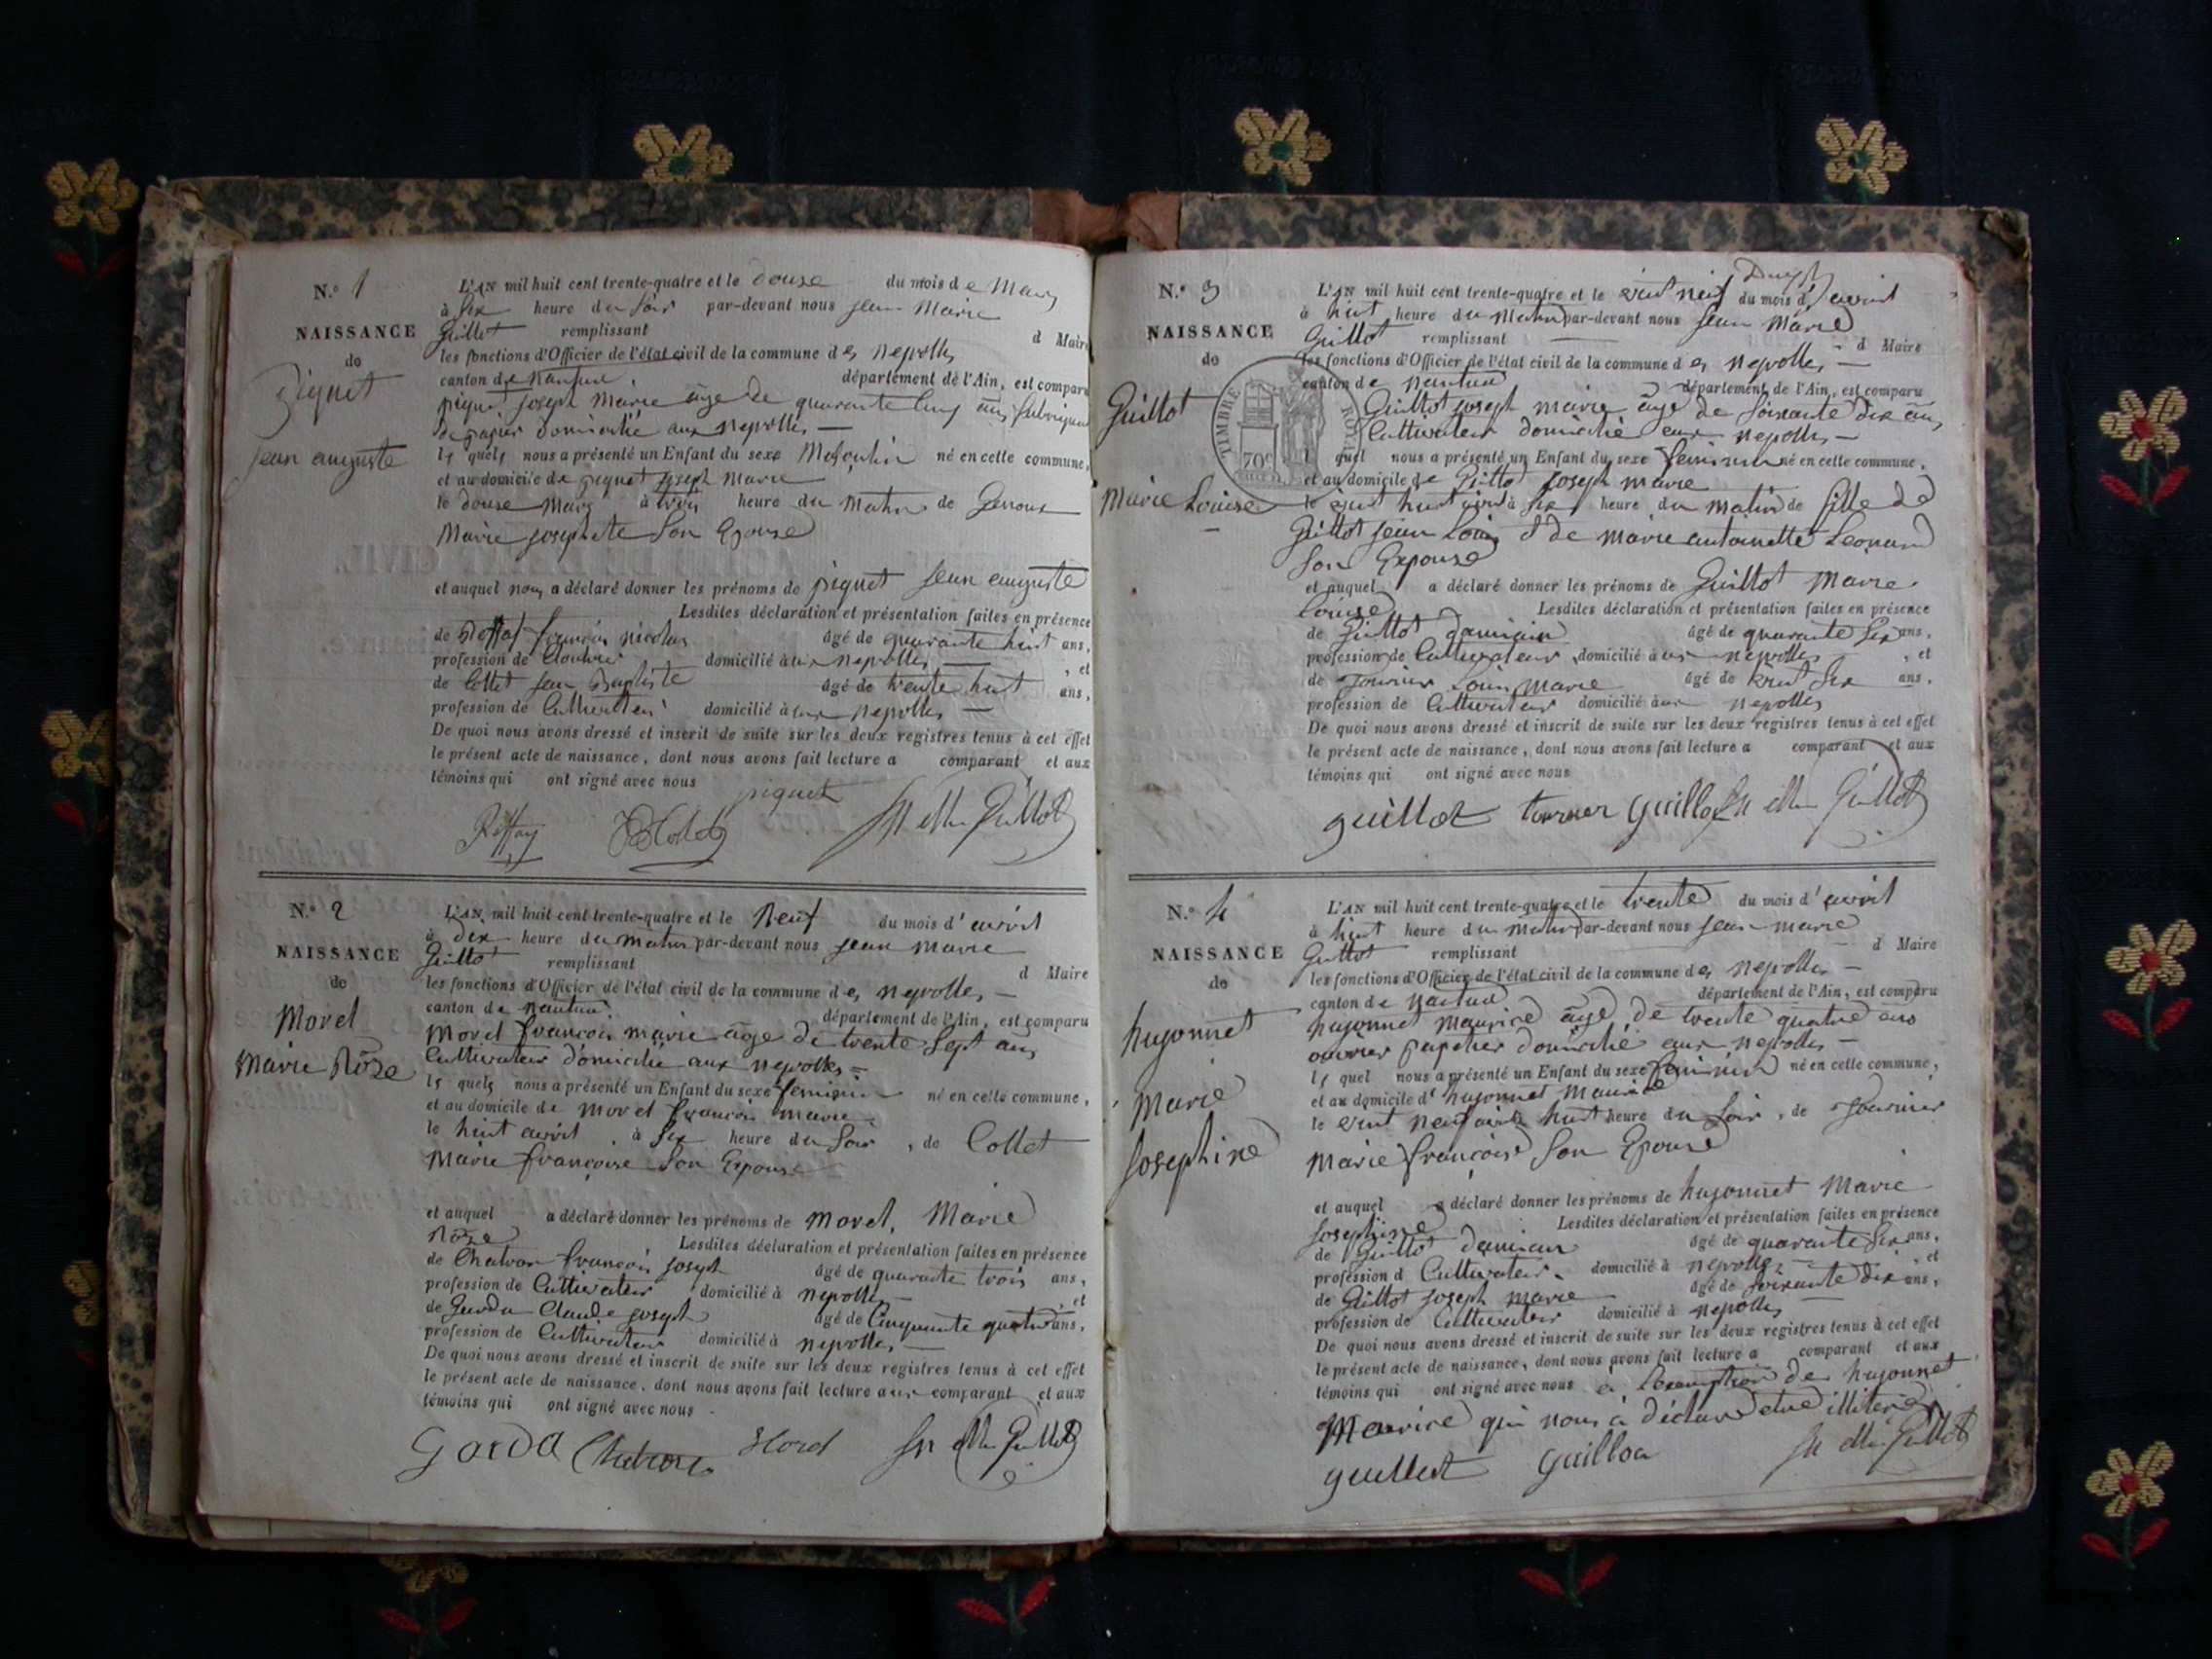 N.º 1
NAISSANCE
de
piquet
jean auguste
L'AN mil huit cent trente-quatre et le douse du mois de Mars
à six heure du soir par-devant nous jean Marie
Guillot remplissant d Maire
les fonctions d'Officier de l'état civil de la commune des neyrolles
canton de nantua département de l'Ain, est comparu
piquet joseph marie âge de quarante cinq ans fabriquant
de papier domicilié aux neyrolles —
le quel nous a présenté un Enfant du sexe Masculin né en cette commune,
et au domicile de piquet joseph marie
le douse mars à trois heure du matin de
Marie josephte son Epouse
et auquel nous a déclaré donner les prénoms de piquet jean auguste
Lesdites déclaration et présentation faites en présence
de françois nicolas âgé de quarante huit ans,
profession de domicilié aux neyrolles — , et
de Collet jean Baptiste âgé de trente huit ans,
profession de Cultivateur domicilié aux neyrolles —
De quoi nous avons dressé et inscrit de suite sur les deux registres tenus à cet effet
le présent acte de naissance, dont nous avons fait lecture a comparant et aux
témoins qui ont signé avec nous
piquet
Guillot
N.º 2
NAISSANCE
de
Morel
Marie Rôze
L'AN mil huit cent trente-quatre et le Neuf du mois d'avril
à dix heure du matin par-devant nous jean marie
Guillot remplissant d Maire
les fonctions d'Officier de l'état civil de la commune des neyrolles —
canton de nantua département de l'Ain, est comparu
Morel françois marie âge de trente sept ans
Cultivateur domicilié aux neyrolles —
le quel nous a présenté un Enfant du sexe feminin né en cette commune,
et au domicile de morel françois marie
le huit avril, à six heure du soir, de Collet
Marie françoise son Epouse
et auquel a déclaré donner les prénoms de morel, Marie
Rôze Lesdites déclaration et présentation faites en présence
de Chatron françois joseph âgé de quarante trois ans,
profession de Cultivateur domicilié à neyrolles — , et
de Garda Claude joseph âgé de Cinquante quatre ans,
profession de Cultivateur domicilié à neyrolles —
De quoi nous avons dressé et inscrit de suite sur les deux registres tenus à cet effet
le présent acte de naissance, dont nous avons fait lecture aux comparant et aux
témoins qui ont signé avec nous.
Garda Chatron Morel Guillot
N.º 3
NAISSANCE
de
Guillot
Marie Louise
TIMBRE ROYAL
70c
L'AN mil huit cent trente-quatre et le vint neuf du mois d'avril
à huit heure du Matin par-devant nous jean Marie
Guillot remplissant — d Maire
les fonctions d'Officier de l'état civil de la commune des neyrolles —
canton de nantua département de l'Ain, est comparu
Guillot joseph marie âge de soixante dix ans
Cultivateur domicilié aux neyrolles —
le quel nous a présenté un Enfant du sexe feminin né en cette commune,
et au domicile de Guillot joseph marie
le vint huit avril à six heure du matin de fille de
Guillot jean Louis & de marie antoinette Leonard
son Epouse
et auquel a déclaré donner les prénoms de Guillot Marie
Louise Lesdites déclaration et présentation faites en présence
de Guillot damien âgé de quarante six ans,
profession de Cultivateur domicilié aux neyrolles , et
de Louis Marie âgé de vint six ans,
profession de Cultivateur domicilié aux neyrolles
De quoi nous avons dressé et inscrit de suite sur les deux registres tenus à cet effet
le présent acte de naissance, dont nous avons fait lecture a comparant et aux
témoins qui ont signé avec nous
guillot Guillot
N.º 4
NAISSANCE
de
hugonnet
Marie
Josephine
L'AN mil huit cent trente-quatre et le trente du mois d'avril
à huit heure du matin par-devant nous jean marie
Guillot remplissant — d Maire
les fonctions d'Officier de l'état civil de la commune des neyrolles —
canton de nantua département de l'Ain, est comparu
hugonnet maurice âgé de trente quatre ans
ouvrier papetier domicilié aux neyrolles —
le quel nous a présenté un Enfant du sexe feminin né en cette commune,
et au domicile d'hugonnet Maurice
le vint neuf avril à huit heure du soir, de
Marie françoise son Epouse
et auquel a déclaré donner les prénoms de hugonnet Marie
Josephine Lesdites déclaration et présentation faites en présence
de Guillot damien âgé de quarante six ans,
profession d Cultivateur. domicilié à neyrolles — , et
de Guillot joseph marie âgé de soixante dix ans,
profession de Cultivateur domicilié à neyrolles —
De quoi nous avons dressé et inscrit de suite sur les deux registres tenus à cet effet
le présent acte de naissance, dont nous avons fait lecture a comparant et aux
témoins qui ont signé avec nous à de hugonnet
Maurice qui nous à déclaré etre illiteré
guillot Guillot